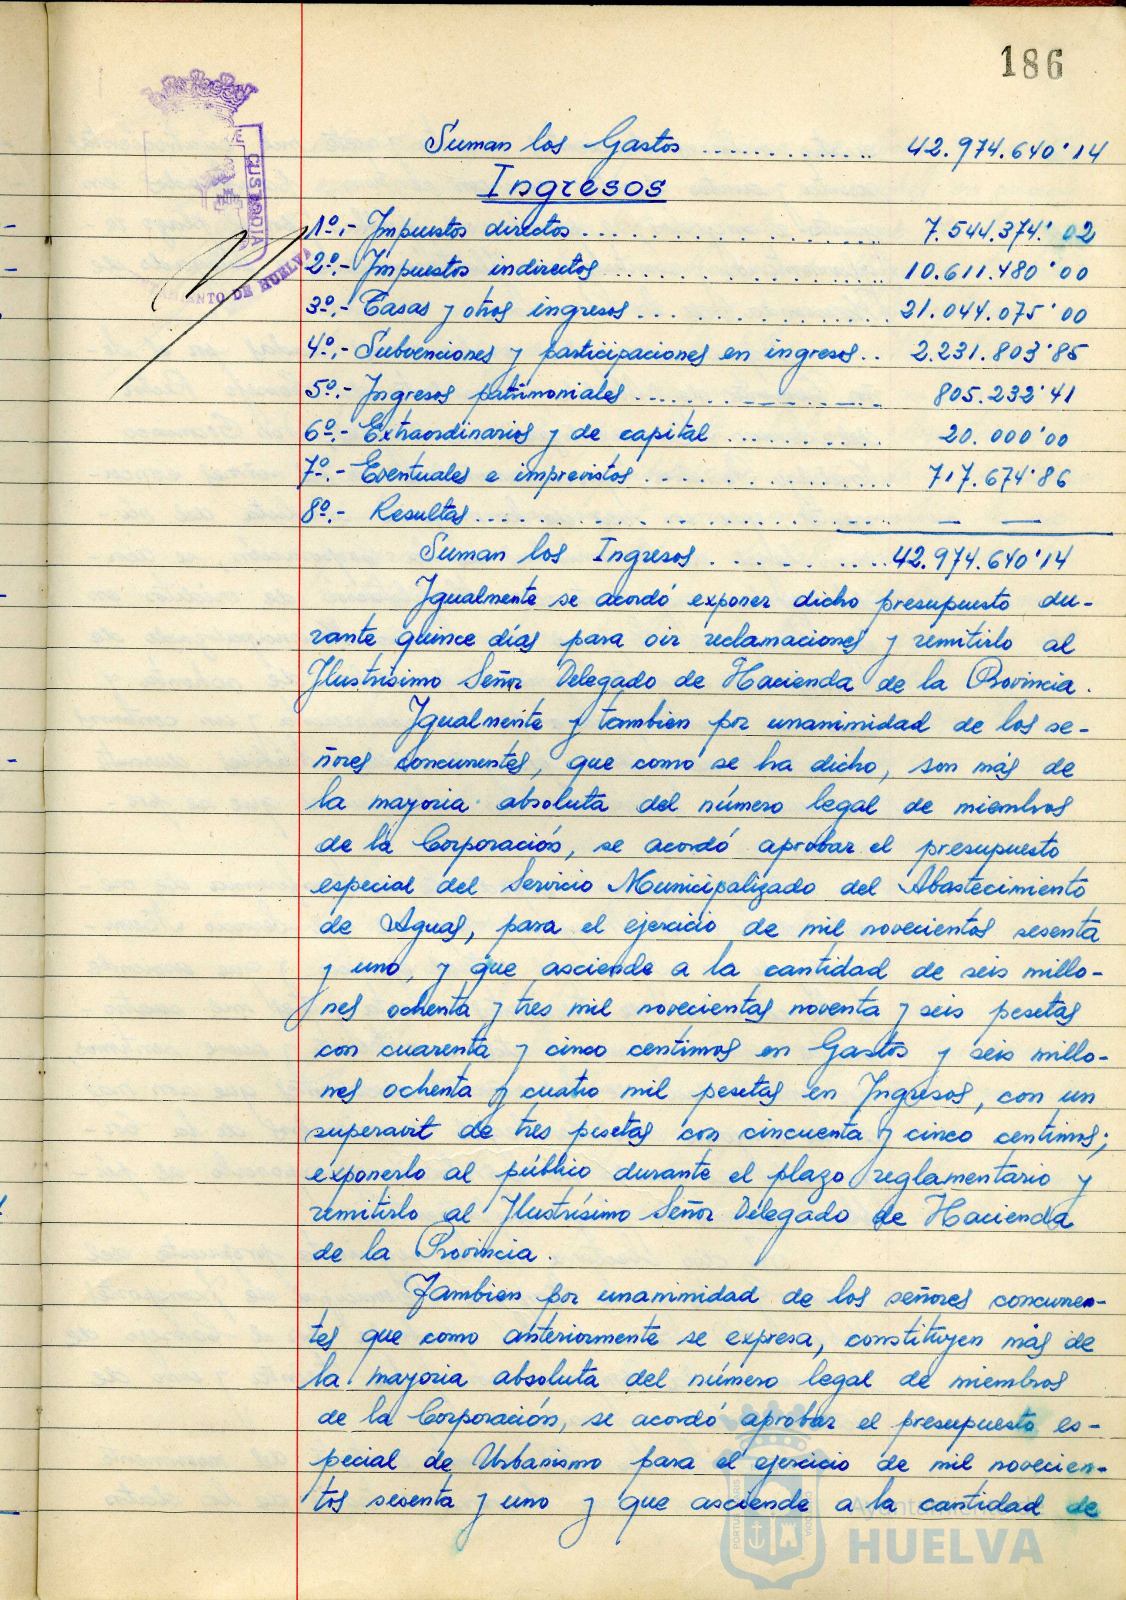 186
Suman los Gastos ............ 42.974.640'14
Ingresos
1º.- Impuestos directos .................. 7.544.374'02
2º.- Impuestos indirectos ............... 10.611.480'00
3º.- Tasas y otros ingresos .............. 21.044.075'00
4º.- Subvenciones y participaciones en ingresos.. 2.231.803'85
5º.- Ingresos patrimoniales .............. 805.232'41
6º.- Extraordinarios y de capital ......... 20.000'00
7º.- Eventuales e imprevistos .............. 717.674'86
8º.- Resultas....................... — —
Suman los Ingresos ......... 42.974.640'14
Igualmente se acordó exponer dicho presupuesto du-
rante quince días para oir reclamaciones y remitirlo al
Ilustrísimo Señor Delegado de Hacienda de la Provincia.
Igualmente y tambien por unanimidad de los se-
ñores concurrentes, que como se ha dicho, son más de
la mayoria absoluta del número legal de miembros
de la Corporación, se acordó aprobar el presupuesto
especial del Servicio Municipalizado del Abastecimiento
de Aguas, para el ejercicio de mil novecientos sesenta
y uno, y que asciende a la cantidad de seis millo-
nes ochenta y tres mil novecientas noventa y seis pesetas
con cuarenta y cinco centimos en Gastos y seis millo-
nes ochenta y cuatro mil pesetas en Ingresos, con un
superavit de tres pesetas con cincuenta y cinco centimos;
exponerlo al público durante el plazo reglamentario y
remitirlo al Ilustrísimo Señor Delegado de Hacienda
de la Provincia.
Tambien por unanimidad de los señores concurren-
tes que como anteriormente se expresa, constituyen más de
la mayoria absoluta del número legal de miembros
de la Corporación, se acordó aprobar el presupuesto es-
pecial de Urbanismo para el ejercicio de mil novecien-
tos sesenta y uno y que asciende a la cantidad de
CUSTODIA
DE HUELVA
Ayuntamiento de
HUELVA